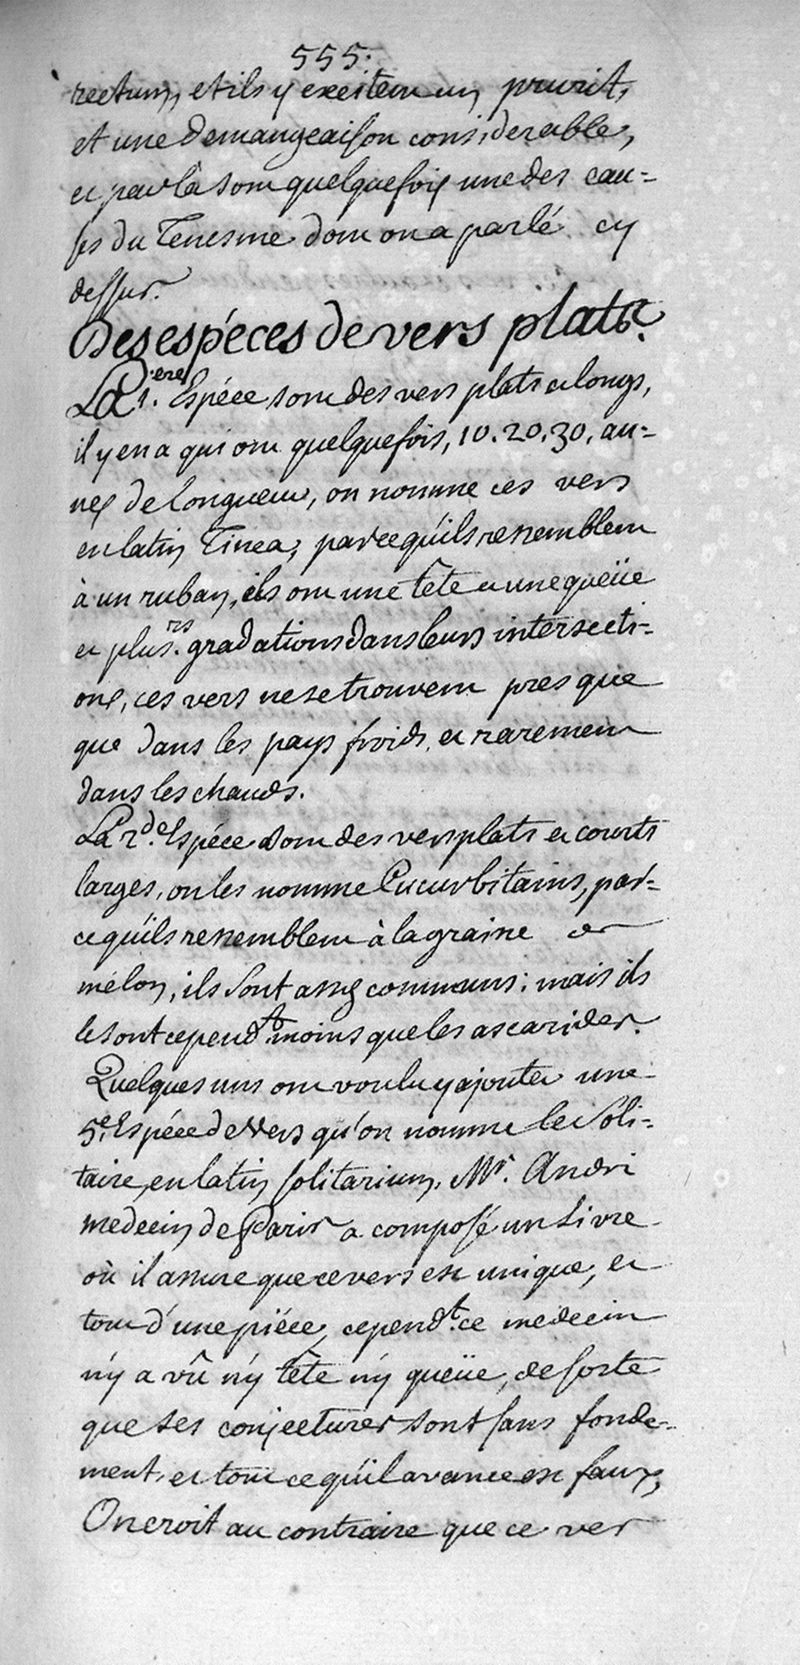 555.
rectum, et ils y excitent un prurit,
et une demangeaison considerable,
et par là sont quelquefois une des cau=
ses du Tenesme dont on a parlé cy
dessus.
Des espéces de vers plats.
La 1.ere Espéce sont des vers plats et longs,
il y en a qui ont quelquefois, 10. 20. 30. au=
nes de longueur, on nomme ces vers
en latin Tinea, parce qu'ils ressemblent
à un ruban, ils ont une tête et une queüe
et plus.rs gradations dans leurs intersecti=
ons, ces vers ne se trouvent pres que
que dans les pays froids, et rarement
dans les chauds.
La 2.de Espéce sont des vers plats et courts
larges, on les nomme Cucurbitains, par=
ce qu'ils ressemblent à la graine de
mélon, ils sont assés communs; mais ils
le sont cepend.t moins que les ascarides.
Quelques uns ont voulu y ajouter une
5.e Espéce de vers qu'on nomme le Soli=
taire, en latin solitarium. Mr. Andri
medecin de Paris a composé un Livre
où il assure que ce vers est unique, et
tout d'une piéce, cepend.t ce medecin
n'y a vû n'y tête n'y queüe, de sorte
que ses conjectures sont sans fonde=
ment, et tout ce qu'il avance est faux,
On croit au contraire que ce ver